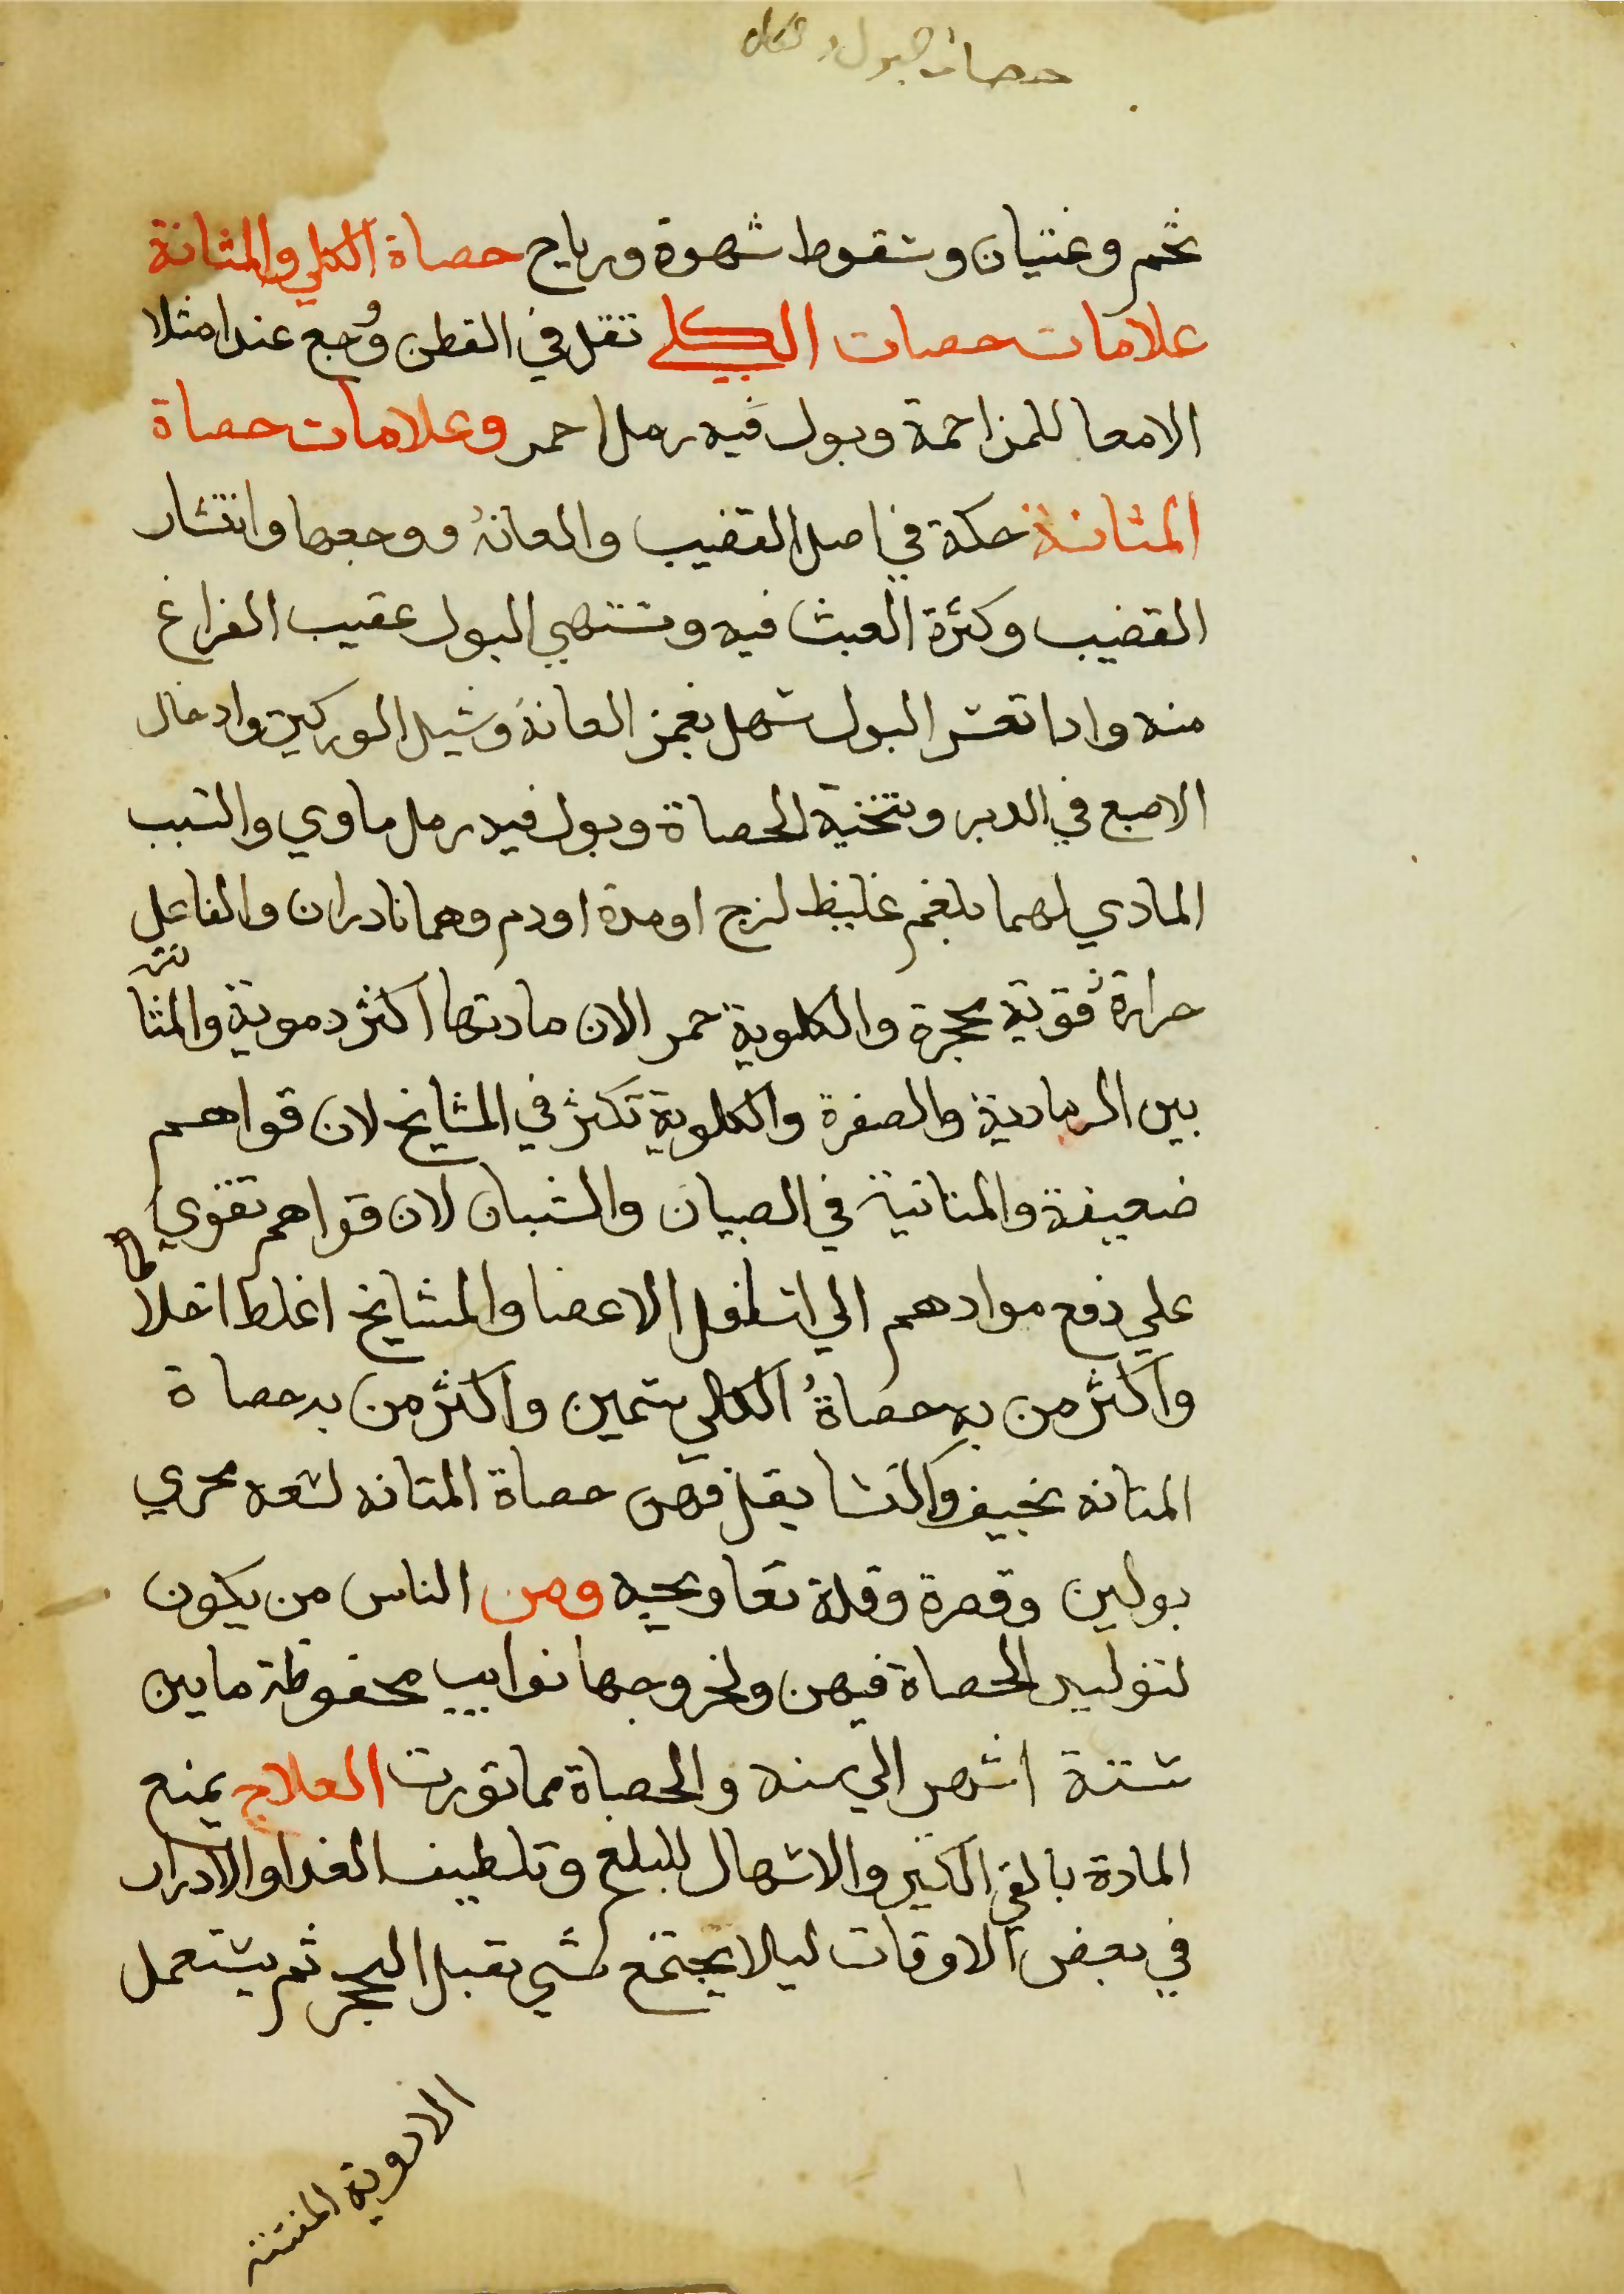 حصات البول
تخم وغثيان وسقوط شهوة ورياح حصاة الكلي والمثانة
علامات حصات الكلي تقل في القطن وُجع عند امتلا
الامعا للمزاحمة وبول فيه رمل احمر وعلامات حصاة
المثانة حكة في اصل القضيب والعانة ووجعها وانتشار
القضيب وكثرة العبث فيه وتشتهي البول عقيب الفراغ
منه واذا تعسر البول سهل بغمز العانة وشيل الوركين وادخال
الاصبع في الدبر وتنحية الحصاة وبول فيه رمل ماوي والسبب
المادي لهما بلغم غليظ لزج او مدة او دم وهما نادران والفاعل
حرارة قوية محجرة والكلوية حمر الان مادتها اكثر دموية والمثا
نية
بين الرمادية والصفرة والكلوية تكثر في المشايخ لان قواهم
ضعيفة والمثانية في الصبيان والشبان لان قواهم تقوي
علي دفع موادهم الي اسافل الاعضا والمشايخ اغلط اخلاطا
واكثر من به حصاةُ الكلي سمين واكثر من به حصاة
المثانه نحيف والنسا يقل فيهن حصاة المثانه لسعه مجري
بولهن وقصرة وقلة تعاويجه ومن الناس من يكون
لتوليد الحصاة فيهن ولخروجها نوايب محفوظة ما بين
ستة اشهر الي سنه والحصاة مما تورث العلاج يمنع
المادة بالقي الكثير والاسهال للبلغم وتلطيف الغدا والادرار
في بعض الاوقات ليالا يجتمع شي يقبل التحجر ثم يستعمل
الادوية المفتتة